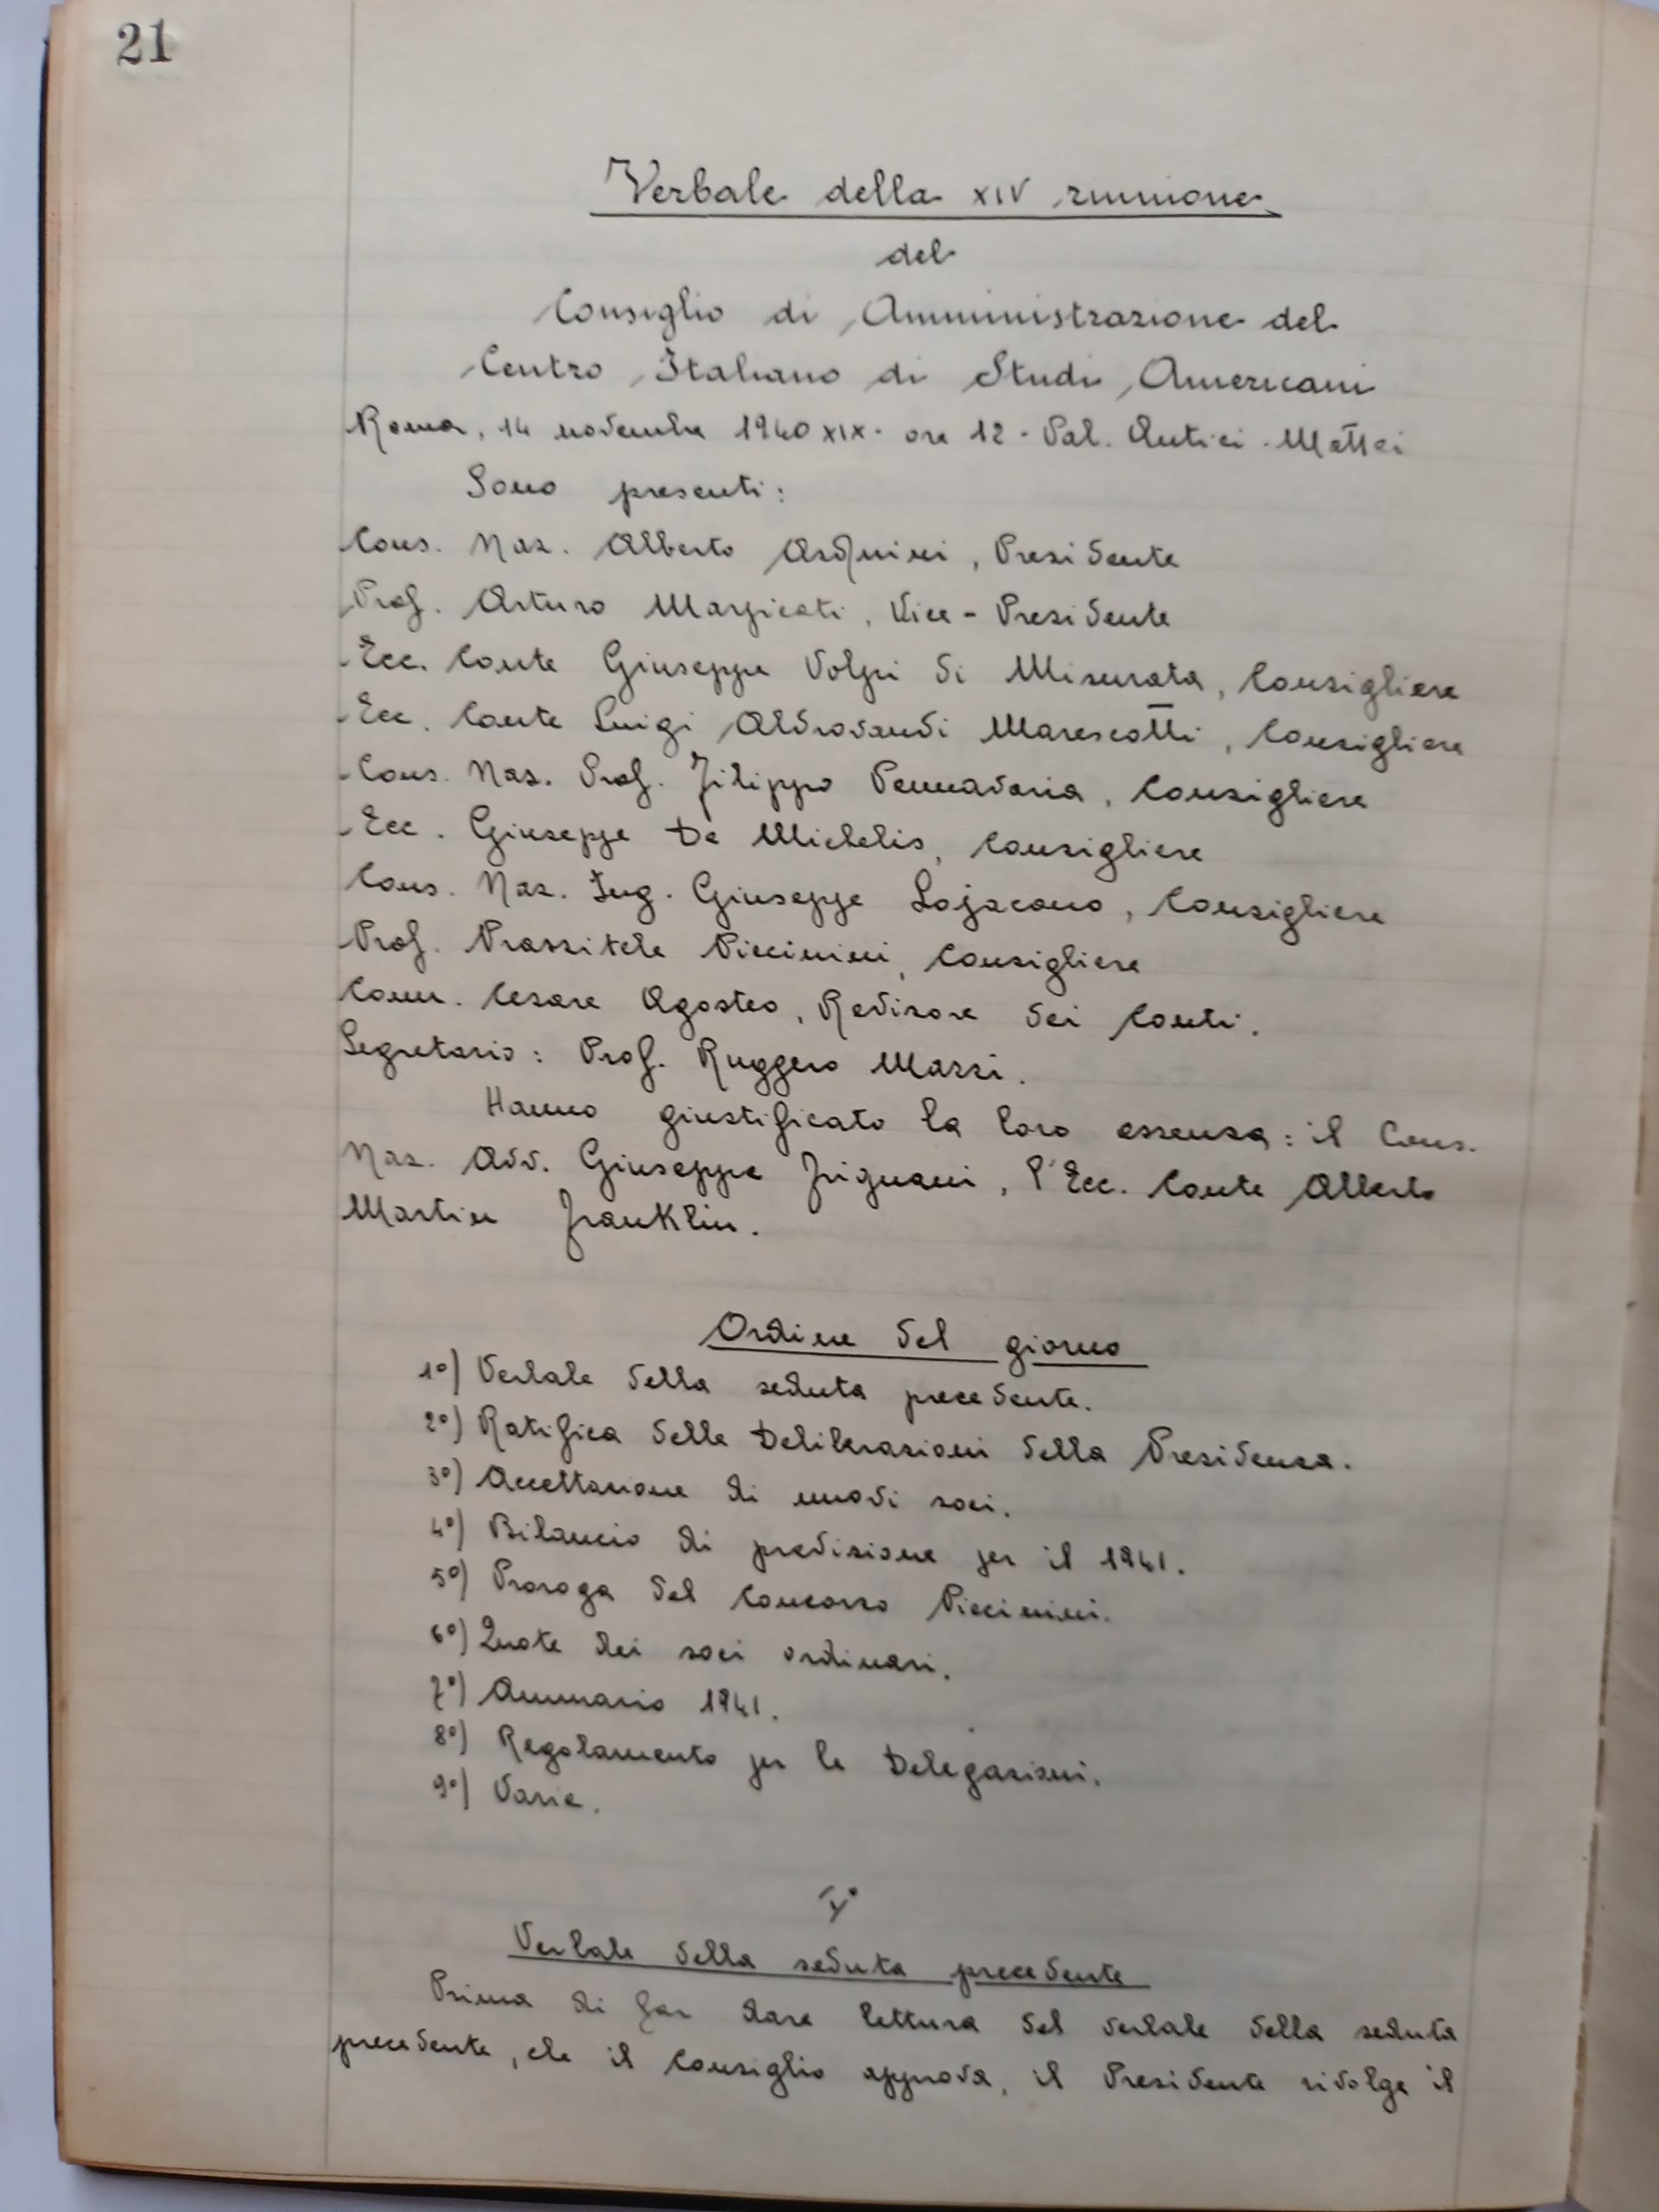 21
Verbale della XIV riunione
del
Consiglio di Amministrazione del
Centro Italiano di Studi Americani
Roma, 14 novembre 1940 XIX - ore 12 - Pal. Antici - Mattei
Sono presenti:
Cons. Naz. Alberto Asquini, Presidente
Prof. Arturo Marpicati, Vice - Presidente
Ecc. Conte Giuseppe Volpi di Misurata, Consigliere
Ecc. Conte Luigi Aldrovandi Marescotti, Consigliere
Cons. Naz. Prof. Filippo Pennavaria, Consigliere
Ecc. Giuseppe De Michelis, Consigliere
Cons. Naz. Ing. Giuseppe Lojacono, Consigliere
Prof. Prassitele Piccinini, Consigliere
Comm. Cesare Agosteo, Revisore dei Conti.
Segretario: Prof. Ruggero Mazzi.
Hanno giustificato la loro assenza: il Cons.
Naz. Avv. Giuseppe Frignani, l'Ecc. Conte Alberto
Martin Franklin.
Ordine del giorno
1º) Verbale della seduta precedente.
2º) Ratifica delle Deliberazioni della Presidenza.
3º) Accettazione di nuovi soci.
4º) Bilancio di previsione per il 1941.
5º) Proroga del Concorso Piccinini.
6º) Quote dei soci ordinari.
7º) Annuario 1941.
8º) Regolamento per le Delegazioni.
9º) Varie.
Iº
Verbale della seduta precedente
Prima di far dare lettura del verbale della seduta
precedente, che il Consiglio approva, il Presidente rivolge il